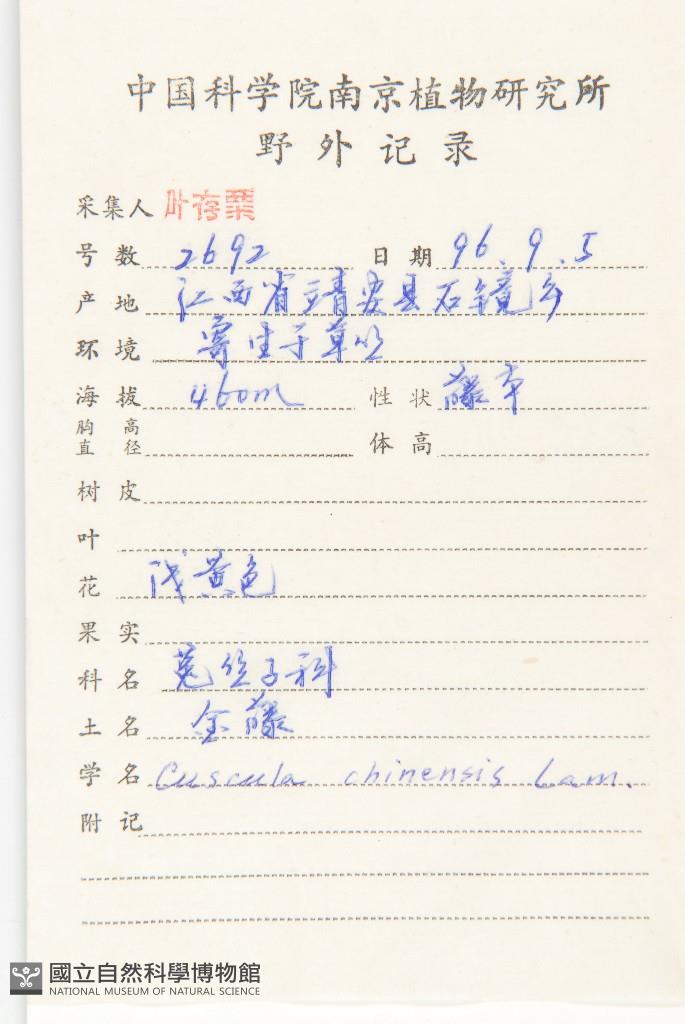 中国科学院南京植物研究所
野外记录
采集人 叶存粟
号数 2692 日期 96.9.5
产地 江西省靖安县石镜乡
环境 寄生于草丛
海拔 460m 性状 藤本
胸高直径 体高
树皮
叶
花 浅黄色
果实
科名 菟丝子科
土名 金藤
学名 Cuscula chinensis Lam.
附记
國立自然科學博物館
NATIONAL MUSEUM OF NATURAL SCIENCE